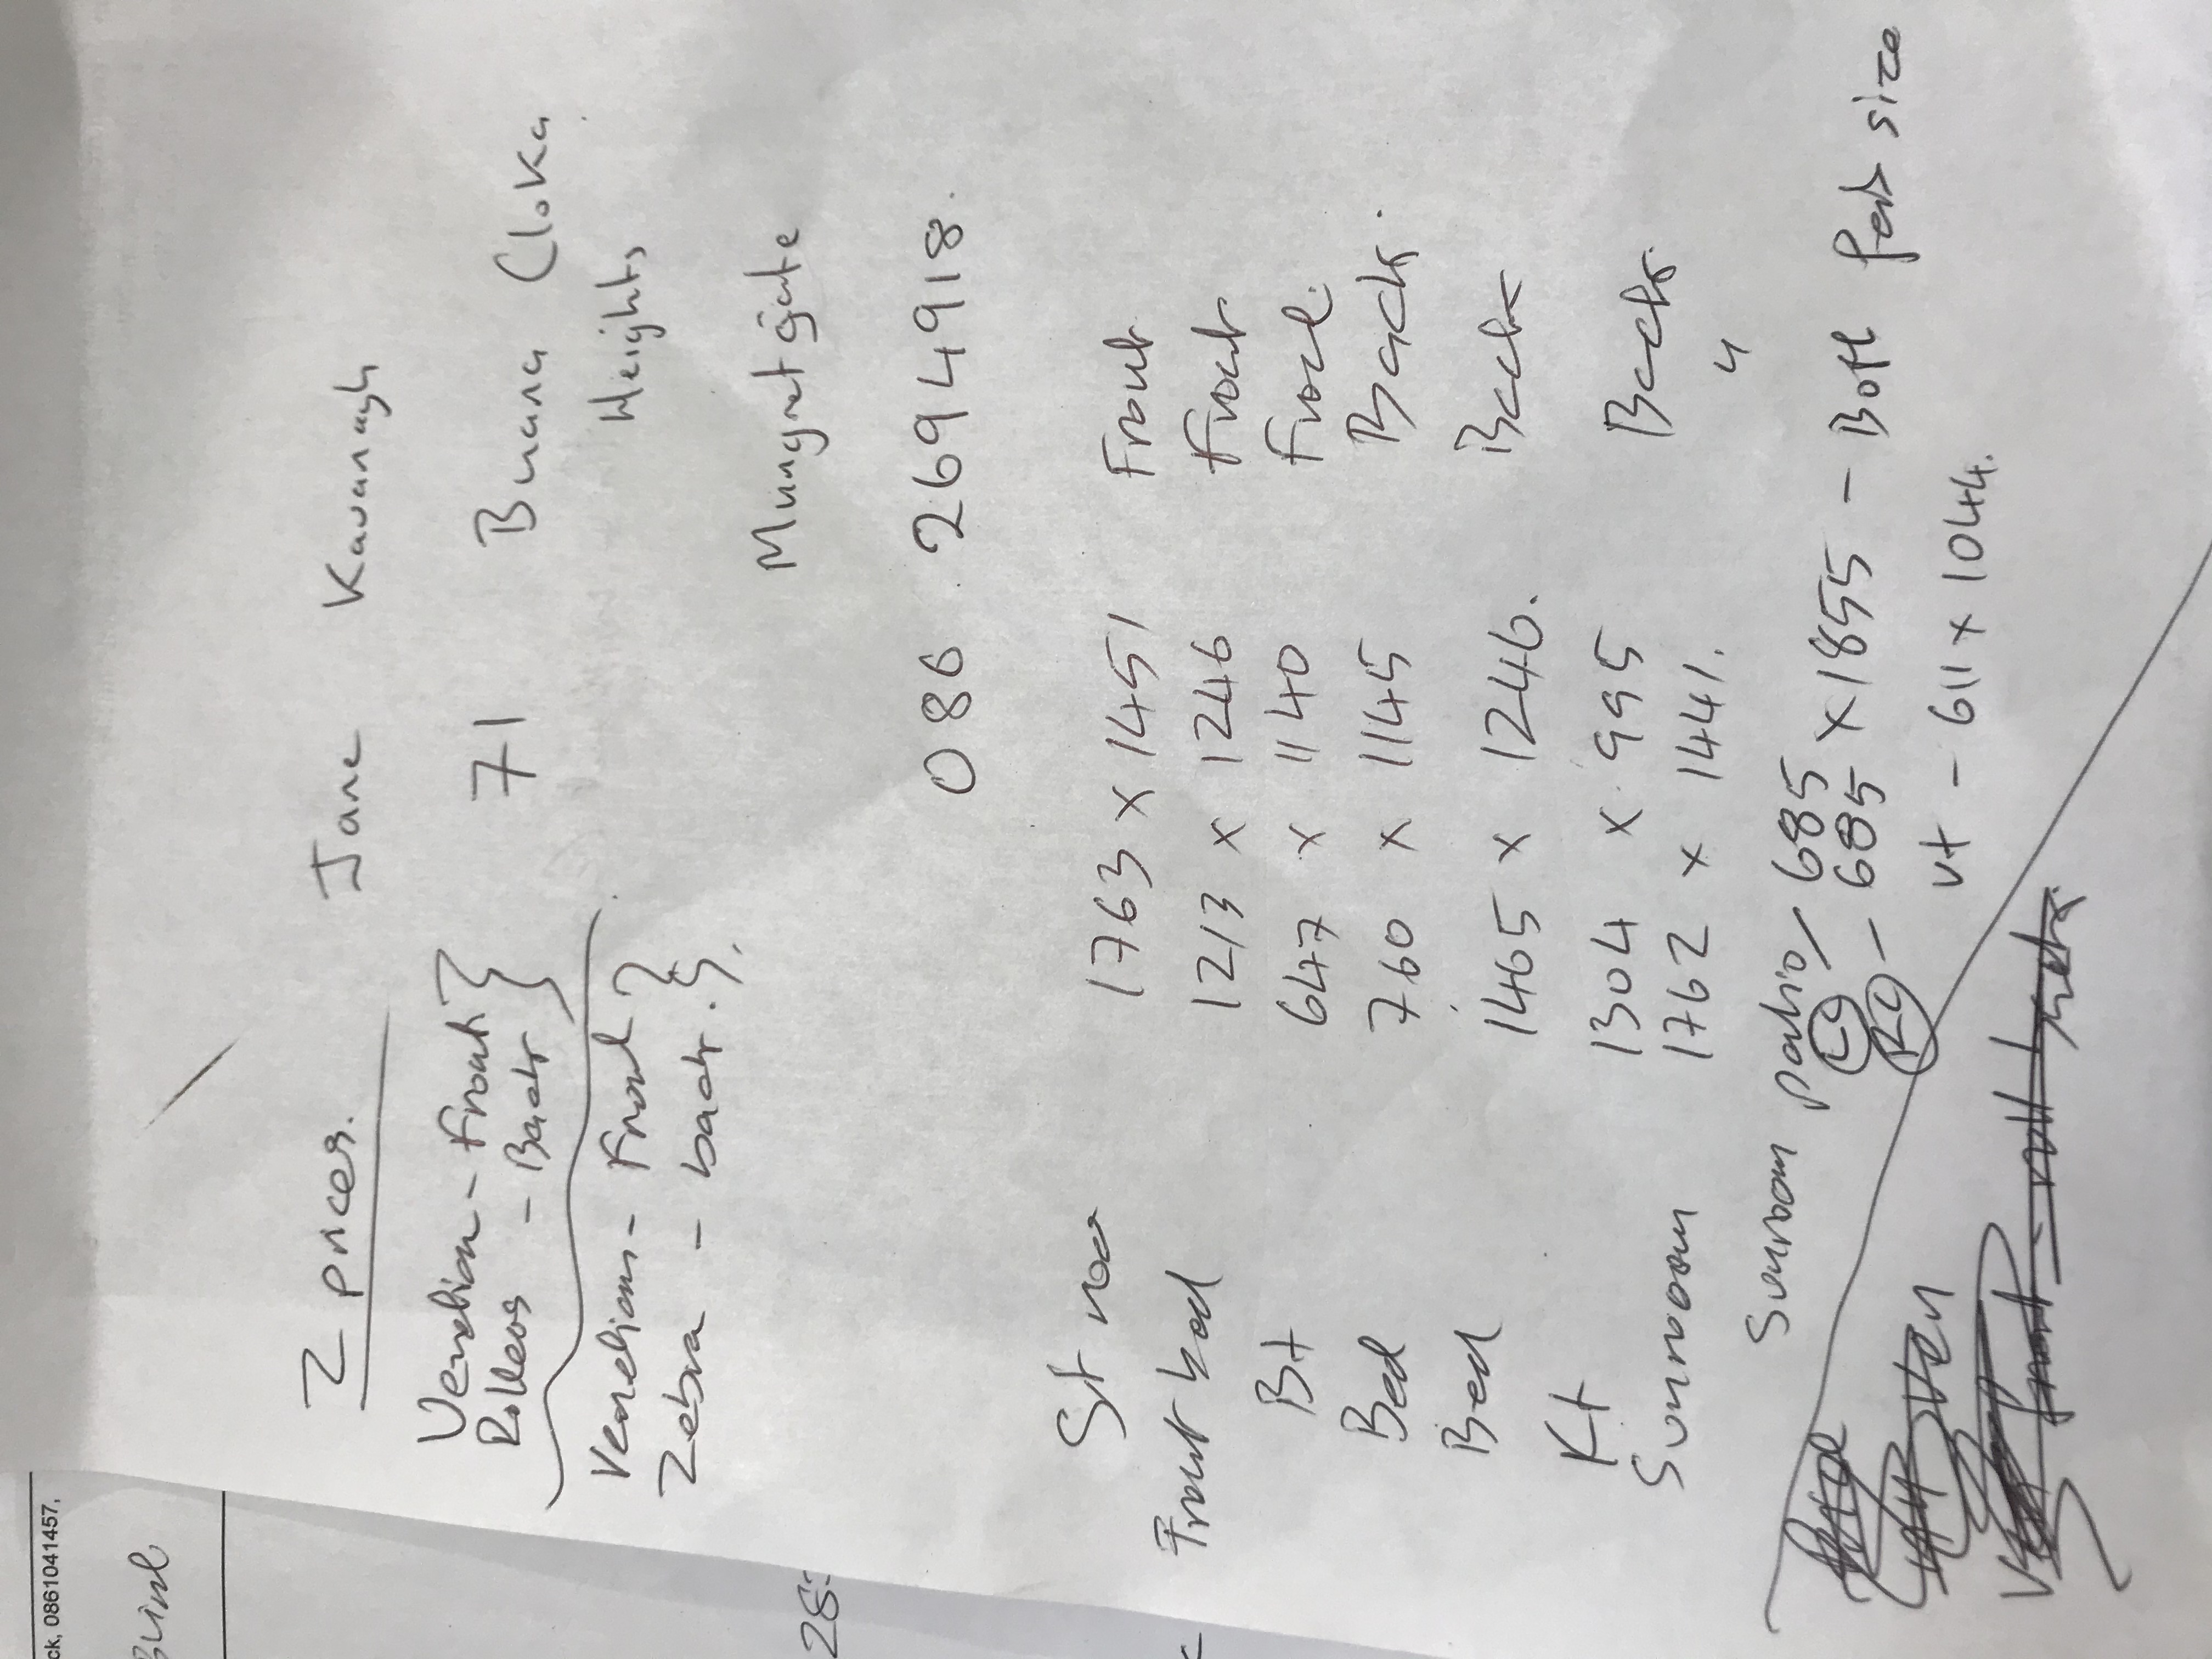 ck, 0861041457,
Blind
28
2 prices.
Jane Kavanagh
Venetian - Front }
Rollers - Back }
71 Buana Cloka
Heights
Venetians - Front }
Zebra - back. }
Mungret gate
086 2694918.
St roo 1763 x 1451 Front
Front bed 1213 x 1246 Front
Bt 647 x 1140 Front.
Bed 760 x 1145 Back.
Bed 1465 x 1246. Back
Kt 1304 x 995 Back
Sunroom 1762 x 1441. "
Sunroom patio / 685
LG RG - 685 x 1855 - Both fab size
vt - 611 x 1044.